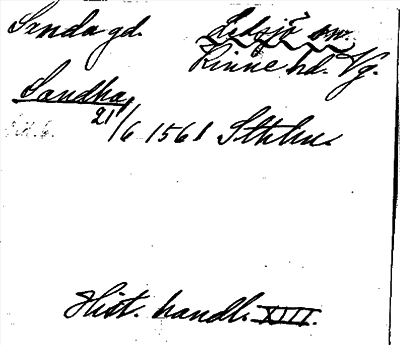 Synda gd. Ledsjö sn.
Kinne hd. Vg.
Sandha
21/6 1561 Sthlm.
Hist. handl. XIII.